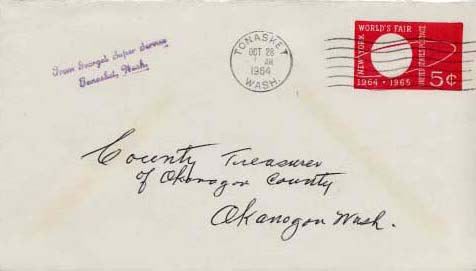 From George's Super Service
Tonasket, Wash.
TONASKET
OCT 26
AM
1964
WASH.
WORLD'S FAIR
NEW YORK
UNITED STATES POSTAGE
1964 • 1965
5¢
County Treasurer
of Okanogan County
Okanogan Wash.